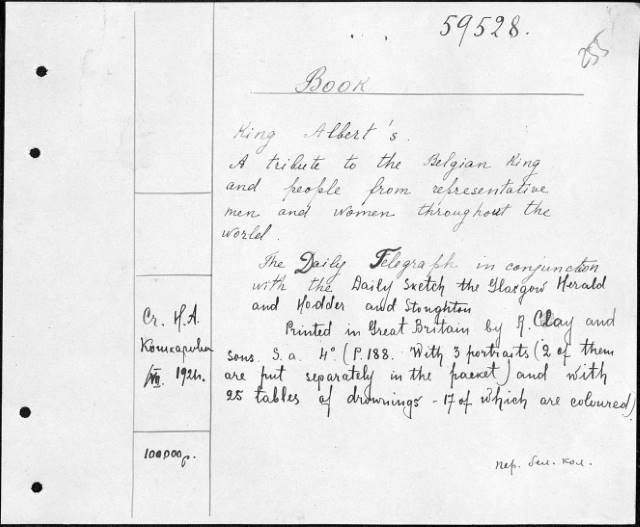 59528.
255
Book
King Albert's.
A tribute to the Belgian King
and people from representative
men and women throughout the
world.
The Daily Telegraph in conjunction
with the Daily Sketch the Glasgow Herald
and Hodder and Stoughton
Printed in Great Britain by R. Clay and
sons. S.a. 4° (P.188. With 3 portraits (2 of them
are put separately in the packet) and with
25 tables of drownings - 17 of which are coloured)
Ст. Н.А.
1924.
100000р.
пер. бел. кол.